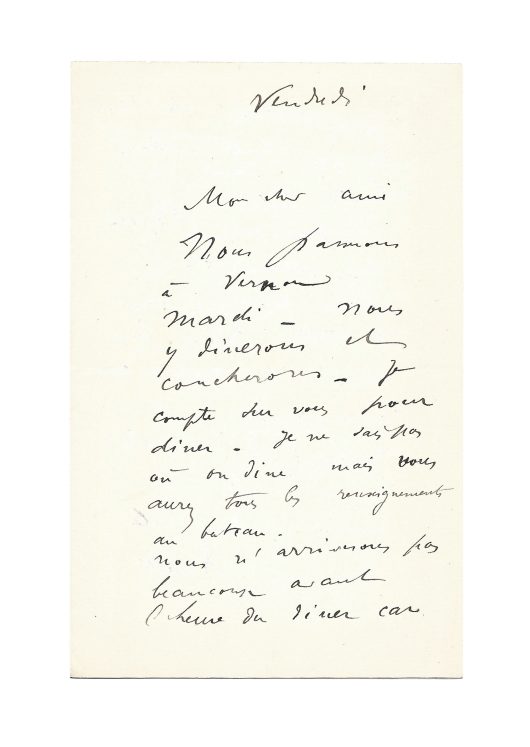 Vendredi
Mon cher ami
Nous passerons
à Vernon
mardi _ nous
y dinerons et
coucherons _ Je
compte sur vous pour
diner _ Je ne sais pas
où on dine mais vous
aurez tous les renseignements
au bateau.
nous n'arriverons pas
beaucoup avant
l'heure du diner car